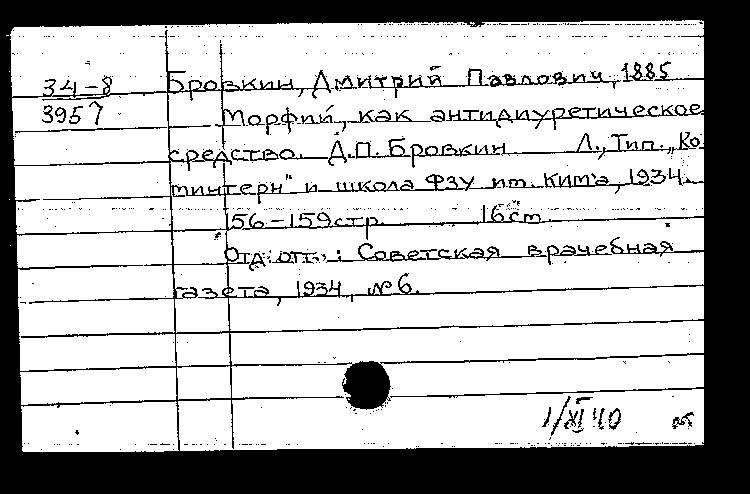 34-8 Бровкин, Дмитрий Павлович, 1885
3957 Морфий, как антидиуретическое
средство. Д.П. Бровкин Л., Тип. „Ко
минтерн" и школа ФЗУ им. КИМ'а, 1934.
156-159 стр. 16 см.
Отд. отт.: Советская врачебная
газета, 1934, № 6.
1/XI 40